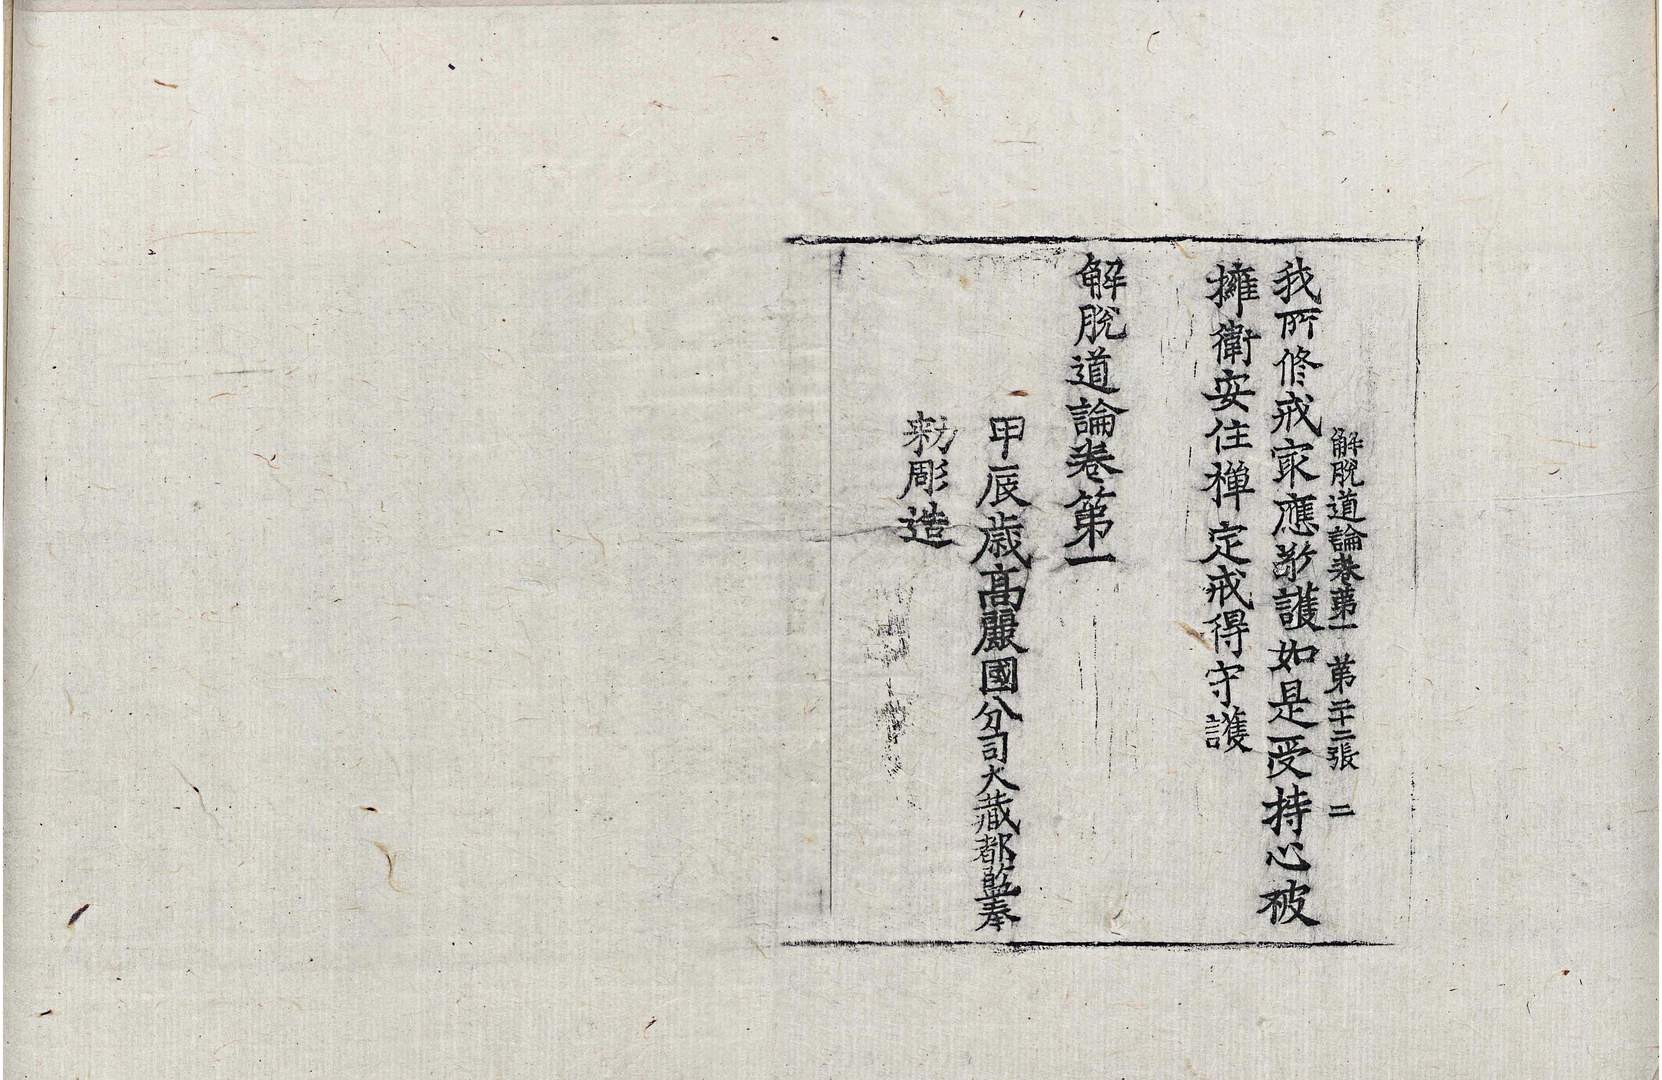 解脫道論卷第一 第二十二張 二
我所修戒㝡應敬護如是受持心被
擁衛安住禪定戒得守護
解脫道論卷第一
甲辰歲高麗國分司大藏都監奉
勑彫造